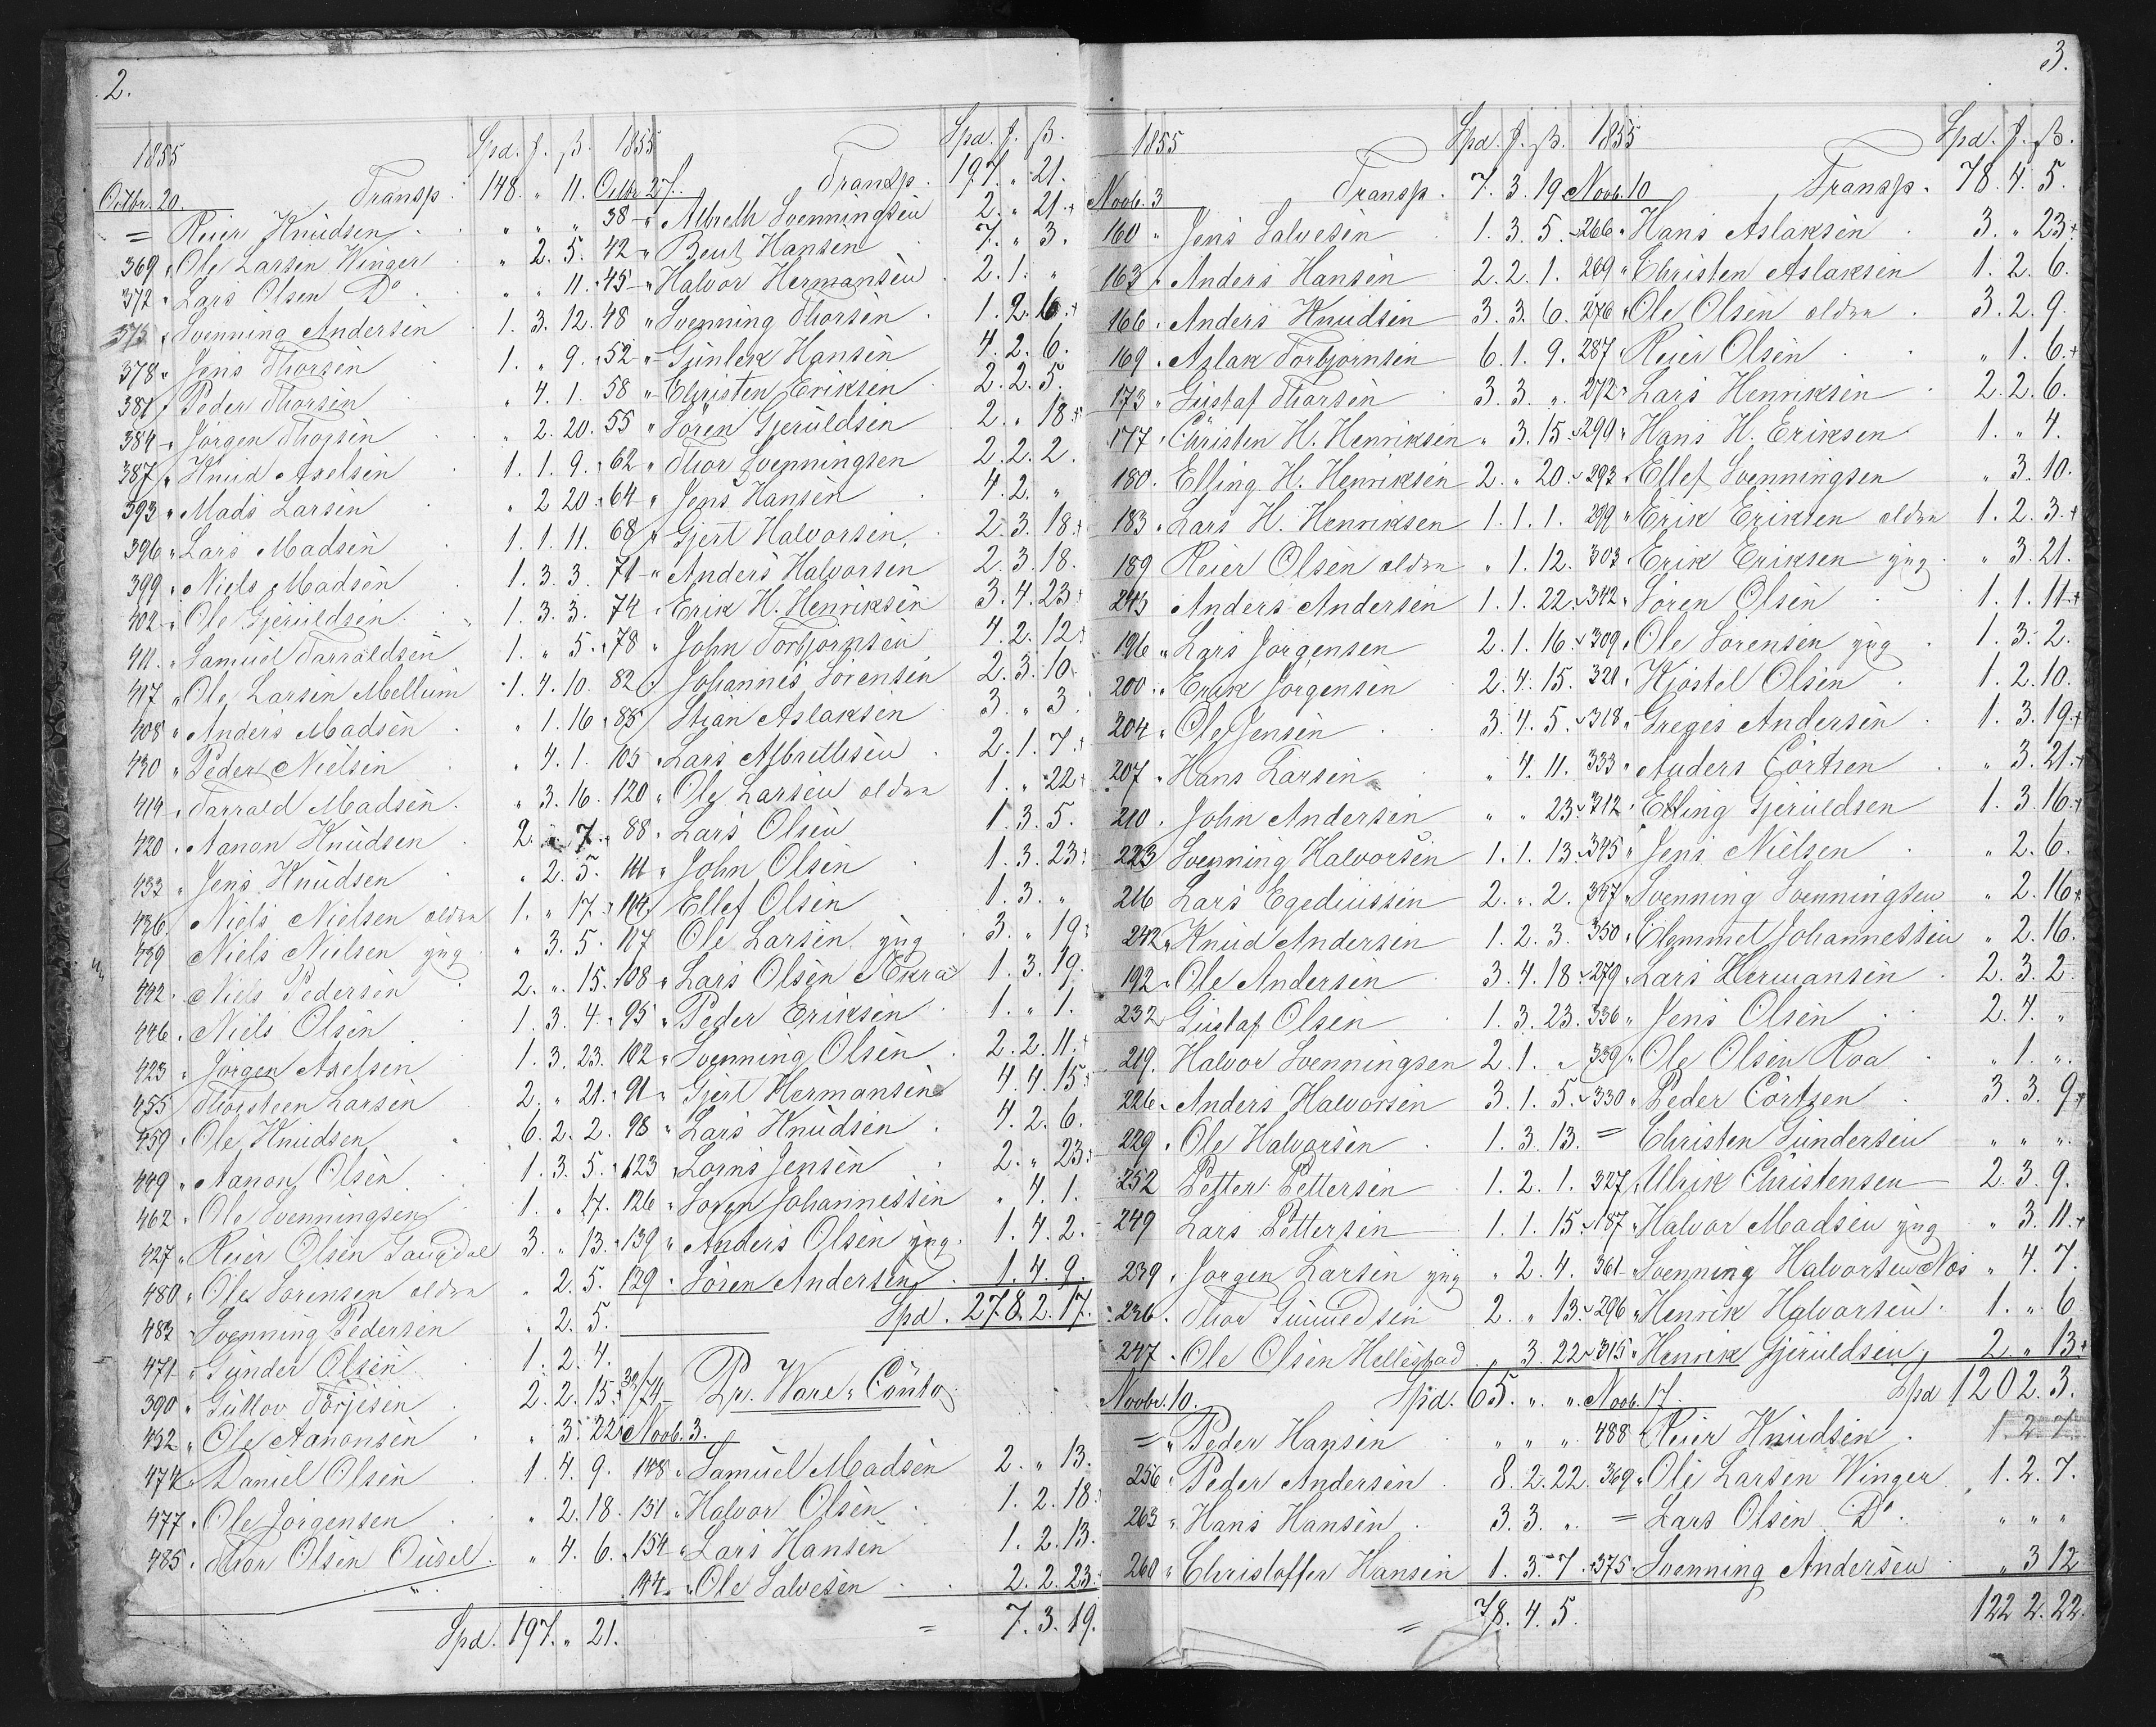 2.
1855 Spd. ß.
Octbr. 20. Transp. 148. " 11.
= Reier Knudsen " " "
369 " Ole Larsen Winger " 2. 5.
372 " Lars Olsen Do " " 11.
375 " Svenning Andersen 1. 3. 12.
378 " Jens Thorsen 1. " 9.
381 " Peder Thorsen " 4. 1.
384 " Jörgen Thorsen " 2. 20.
387 " Knud Axelsen 1. 1. 9.
393 " Mads Larsen " 2 20.
396 " Lars Madsen 1. 1. 11.
399 " Niels Madsen 1. 3. 3.
402 " Ole Gjeruldsen 1. 3. 3.
411 " Samuel Tarraldsen 1. " 5.
417 " Ole Larsen Mellum 1. 4. 10.
408 " Anders Madsen " 1. 16
430 " Peder Nielsen " 4. 1.
414 " Tarrald Madsen " 3. 16.
420 " Aanon Knudsen 2. " 7.
433 " Jens Knudsen " 2. 5.
436 Niels Nielsen oldrn 1. " 17.
439 Niels Nielsen yng " 3. 5.
442 " Niels Pedersen 2. " 15.
446 " Niels Olsen 1. 3. 4.
423 " Jörgen Axelsen 1. 3. 23.
455 Thorsteen Larsen 2. " 21.
459 " Ole Knudsen 6. 2. 2.
449 " Aanon Olsen 1. 3. 5.
462 " Ole Svenningsen 1. " 17.
427 " Reier Olsen 3. " 13.
480 " Ole Sörensen oldrn " 2. 5.
483 " Svenning Pedersen " 2. 5.
471 " Gunder Olsen 1. 2. 4.
390 " Gullov Törjesen 2. 2. 15.
452 " Ole Aanonsen " 3. 22
474 " Daniel Olsen 1. 4. 9.
477 " Ole Jörgensen " 2. 18.
485 " Thor Olsen Ousel " 4. 6.
Spd. 197. " 21.
1855 Spd. ß.
Octbr 27. Transp. 197. " 21.
38 " Albreth Svenningsen 2. " 21.
42 " Bent Hansen 7. " 3.
45 " Halvor Hermansen 2. 1. "
48 " Svenning Thorsen 1. 2. 6.
52 " Gunlek Hansen 4. 2. 6.
58 " Christen Eriksen 2. 2. 5.
55 " Sören Gjeruldsen 2. " 18.
62 " Thor Svenningsen 2. 2. 2.
64 " Jens Hansen 4. 2. "
68 " Gjert Halvorsen 2. 3. 18.
71 " Anders Halvorsen 2. 3. 18.
74 " Erik H. Henriksen 3. 4. 23.
78 " John Torbjornsen 4. 2. 12.
82 " Johannes Sörensen 2. 3. 10.
85 Stian Aslaksen 3. " 3.
105 " Lars Albrethsen 2. 1. 7.
120 " Ole Larsen oldrn 1. " 22
88 " Lars Olsen 1. 3. 5.
111 " John Olsen 1. 3. 23.
114 " Ellef Olsen 1. 3. "
117 Ole Larsen yng 3. " 19.
108 " Lars Olsen Akra 1. 3. 19.
95 " Peder Eriksen 1. " 1.
102 " Svenning Olsen 2. 2. 11.
91 " Gjert Hermansen 4. 4. 15.
98 " Lars Knudsen 4. 2. 6.
123 " Jensen 2. " 23.
126 " Soren Johannessen " 4. 1.
139 " Anders Olsen yng. 1. 4. 2.
129 " Sören Andersen 1. 4. 9.
Spd. 278. 2. 17.
Pr. Ware-Conto
Novb. 3.
148 " Samuel Madsen 2. " 13.
151 " Halvor Olsen 1. 2. 18.
154 " Lars Hansen 1. 2. 13.
144 " Ole Salvesen 2. 2. 23.
= 7. 3. 19.
3.
1855 Spd. ß.
Novb. 3 Transp. 7. 3. 19
160 " Jens Salvesen 1. 3. 5.
163 " Anders Hansen 2. 2. 1.
166 " Anders Knudsen 3. 3. 6.
169 " Aslak Torbjornsen 6. 1. 9.
173 " Gustaf Thorsen 3. 3. "
177 " Christen H. Henriksen " 3. 15
180. Elling H. Henriksen 2. " 20.
183 " Lars H. Henriksen 1. 1. 1.
189 Reier Olsen oldrn " 1. 12.
243 Anders Andersen 1. 1. 22.
196 " Lars Jörgensen 2. 1. 16
200 " Erik Jörgensen 2. 4. 15.
204 " Ole Jensen 3. 4. 5.
207 " Hans Larsen " 4. 11.
210 " John Andersen " " 23
223 Svenning Halvorsen 1. 1. 13.
216 Lars Egediussen 2. " 2.
242 " Knud Andersen 1. 2. 3.
192 " Ole Andersen 3. 4. 18
232 Gustaf Olsen 1. 3. 23.
219. Halvor Svenningsen 2. 1. "
226 " Anders Halvorsen 3. 1. 5.
229 " Ole Halvorsen 1. 3. 13.
252 Petter Pettersen 1. 2. 1.
249 Lars Pettersen 1. 1. 15.
239 " Jorgen Larsen yng " 2. 4.
236 " Thor Gunuldsen 2. " 13
247 " Ole Olsen " 3. 22
Spd. 65. " "
Novbr. 10.
= " Peder Hansen " " "
256 " Peder Andersen 8. 2. 22.
263 " Hans Hansen 3. 3. "
260 " Christoffer Hansen 1. 3. 7.
= 78. 4. 5.
1855 Spd. ß.
Novb. 10 Transp. 78. 4. 5.
266 " Hans Aslaksen 3. " 23.
269 " Christen Aslaksen 1. 2. 6.
276 " Ole Olsen oldrn 3. 2. 9.
287 " Reier Olsen " 1. 6.
272 " Lars Henriksen 2. 2. 6.
290 " Hans H. Eriksen 1. " 4.
293 " Ellef Svenningsen " 3. 10.
299 " Erik Eriksen oldrn 1. 2. 3.
303 " Erik Eriksen yng " 3. 21.
342 " Sören Olsen 1. 1. 11
309 " Ole Sörensen yng 1. 3. 2.
321 " Kjöstel Olsen 1. 2. 10.
318 " Greges Andersen 1. 3. 19.
333 " Anders Cörtsen " 3. 21.
312 " Elling Gjeruldsen 1. 3. 16.
345 " Jens Nielsen " 2. 6.
347 " Svenning Svenningsen " 2. 16
350 " Clemmet Johannessen " 2. 16.
279 " Lars Hermansen 2. 3. 2.
336 " Jens Olsen 2. 4. "
339 " Ole Olsen Roa " 1. "
330 " Peder Cörtsen 3. 3. 9.
= Christen Gundersen " " "
327 " Ulrik Christensen 2. 3. 9.
187 " Halvor Madsen yng " 3. 11.
361 " Svenning Halvorsen Næs " 4. 7.
296 " Henrik Halvorsen 1. " 6
315 " Henrik Gjeruldsen 2. " 13
Spd 120 2. 3.
Novb. 17.
488 Reier Knudsen 1. 2. 7
369 " Ole Larsen Winger 1. 2. 7.
= Lars Olsen Do " " "
375 " Svenning Andersen " 3 12
122 2. 22.